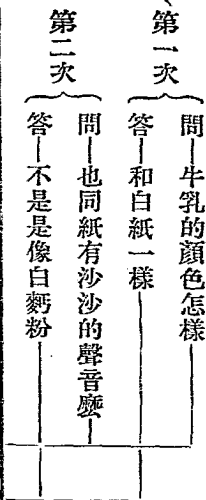 第一次
問—牛乳的顏色怎樣
答—和白紙一樣
第二次
問—也同紙有沙沙的聲音麼
答—不是是像白麪粉